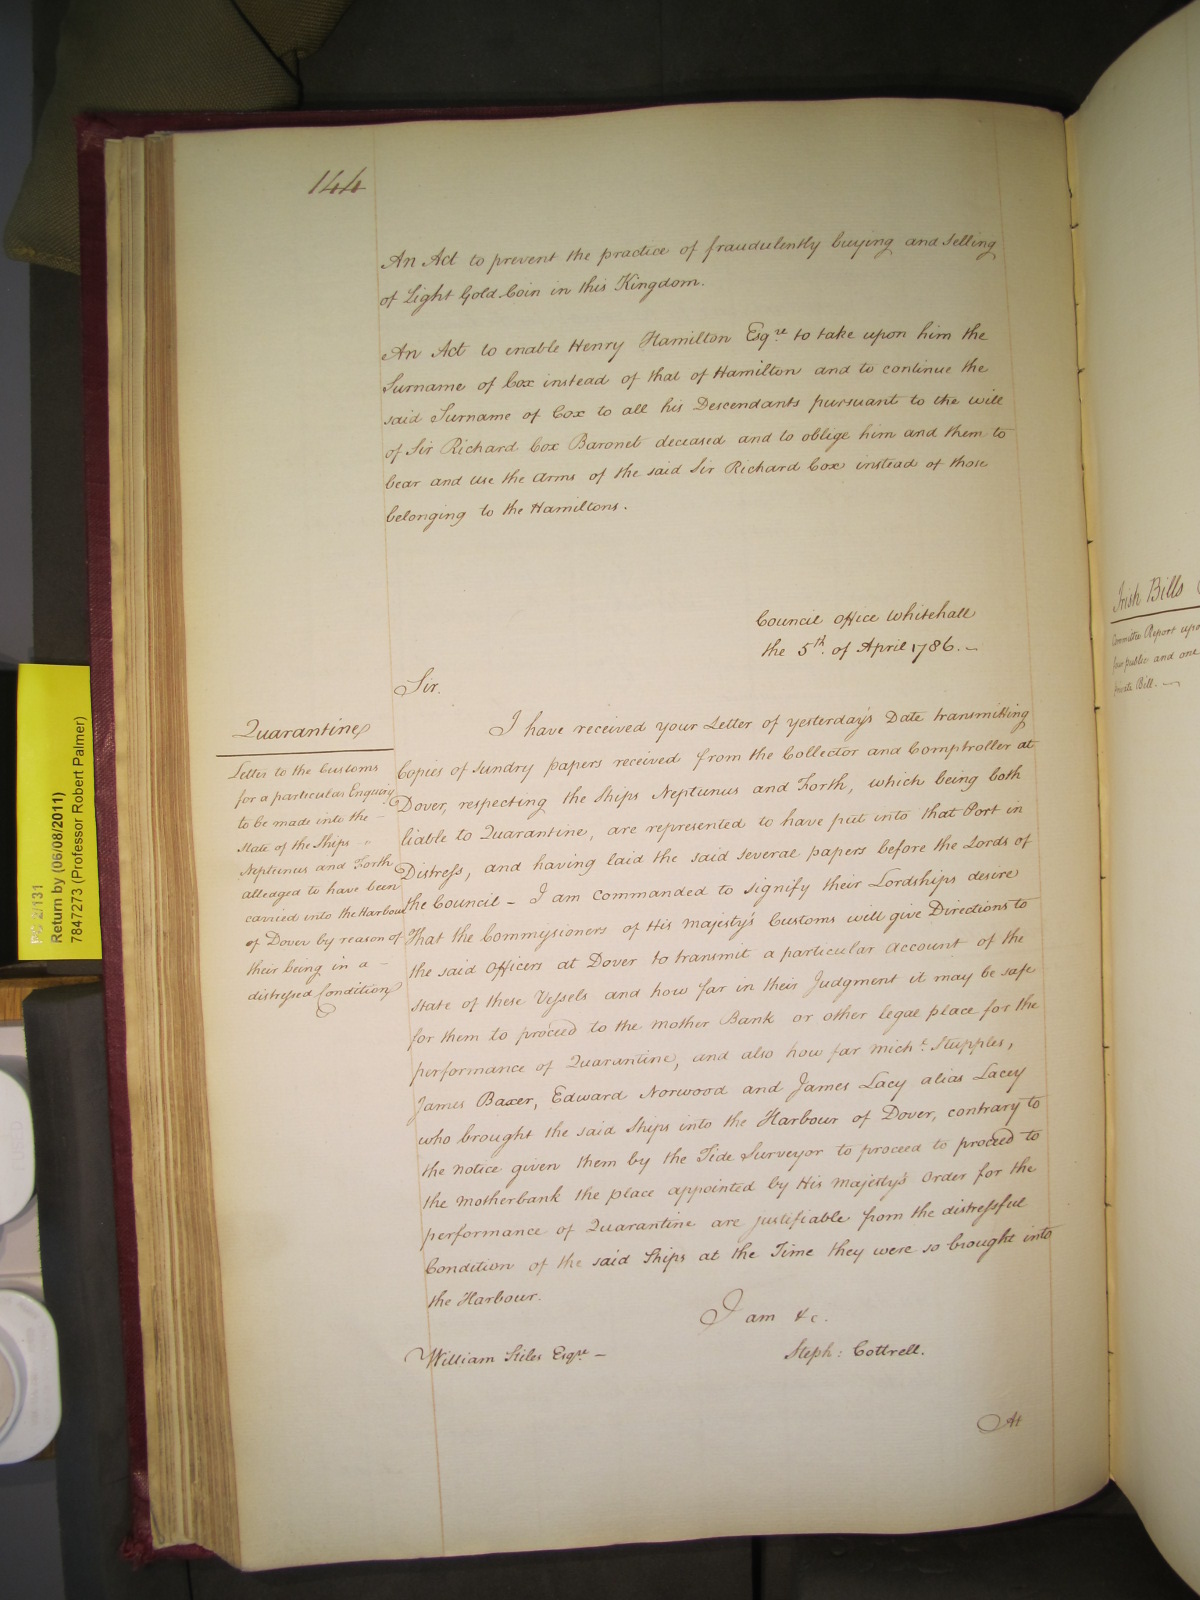 144
An Act to prevent the practice of fraudulently buying and selling
of Light Gold Coin in this Kingdom.
An Act to enable Henry Hamilton Esqre to take upon him the
Surname of Cox instead of that of Hamilton and to continue the
said Surname of Cox to all his Descendants pursuant to the will
of Sir Richard Cox Baronet deceased and to oblige him and them to
bear and use the Arms of the said Sir Richard Cox instead of those
belonging to the Hamiltons.
Council Office Whitehall
the 5th. of April 1786.
Sir.
Quarantine
Letter to the Customs
for a particular Enquiry
to be made into the –
state of the Ships "
Neptunus and Forth
alledged to have been
carried into the Harbour
of Dover by reason of
their being in a –
distressed Condition
I have received your Letter of yesterday's Date transmitting
Copies of sundry papers received from the Collector and Comptroller at
Dover, respecting the Ships Neptunus and Forth, which being both
liable to Quarantine, are represented to have put into that Port in
Distress, and having laid the said several papers before the Lords of
the Council – I am commanded to signify their Lordships desire
That the Commyssioners of His Majesty's Customs will give Directions to
the said Officers at Dover to transmit a particular Account of the
state of these Vessels and how far in their Judgment it may be safe
for them to proceed to the mother Bank or other legal place for the
performance of Quarantine, and also how far Michl. Stupples,
James Baxer, Edward Norwood and James Lacy alias Lacey
who brought the said Ships into the Harbour of Dover, contrary to
the notice given them by the Tide Surveyor to proceed to proceed to
the motherbank the place appointed by His Majesty's Order for the
performance of Quarantine are justifiable from the distressful
Condition of the said Ships at the Time they were so brought into
the Harbour.
I am &c.
William Stiles Esqre –
Steph: Cottrell.
At
Irish Bills
Committee Report upon
four public and one
private Bill.
PC 2/131
Return by (06/08/2011)
7847273 (Professor Robert Palmer)